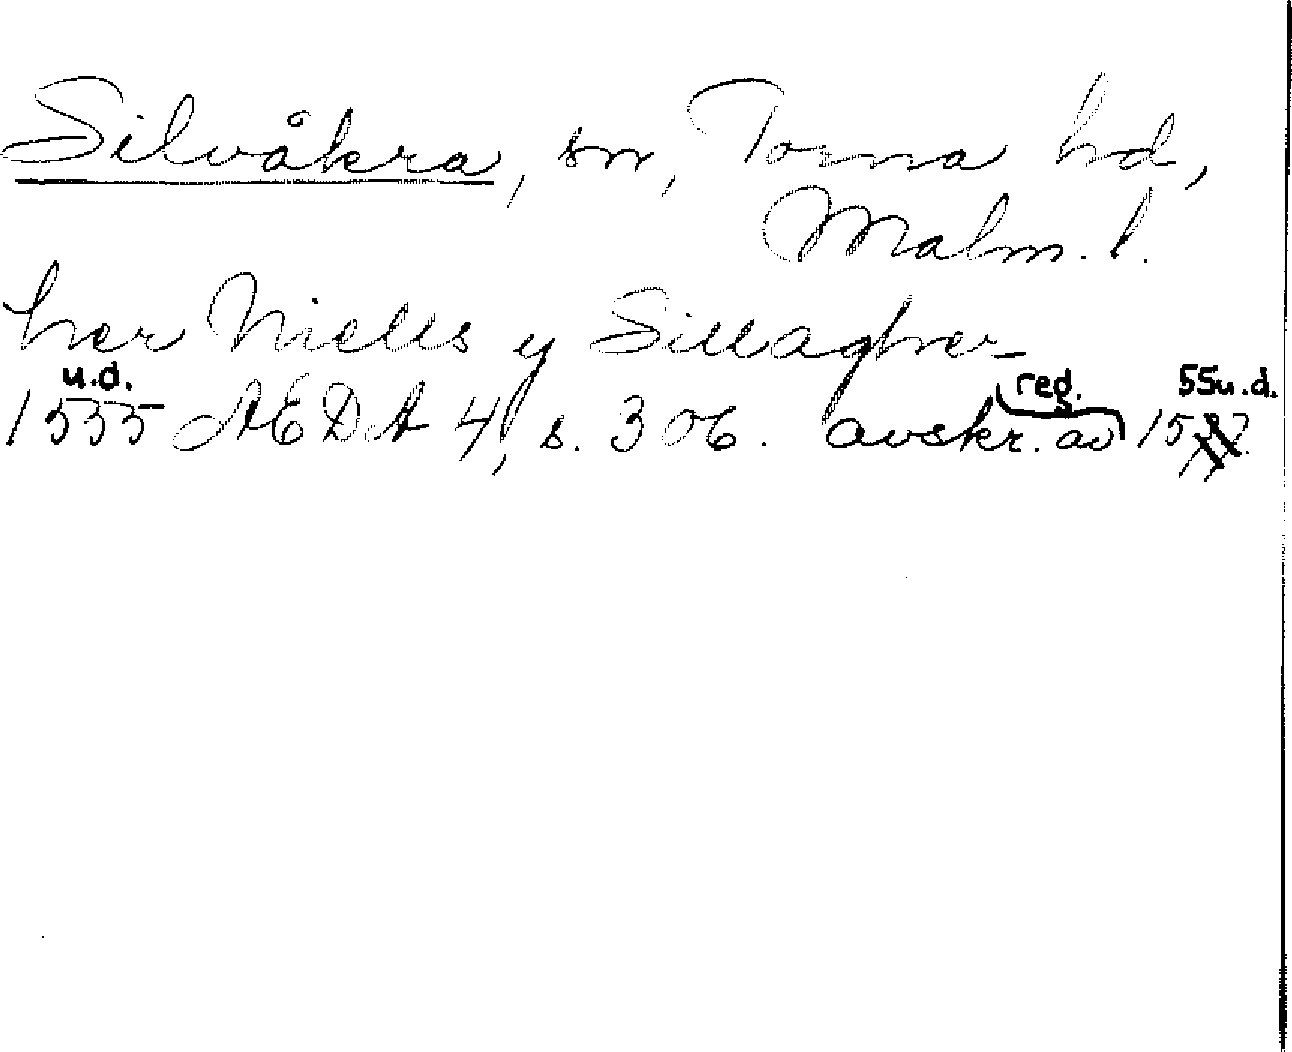 Silvåkra, sn, Torna hd,
Malm. l.
her Niells y Sillagher
u.d. reg. 55 u.d.
1535 AEDA 4, s. 306. avskr. av 15